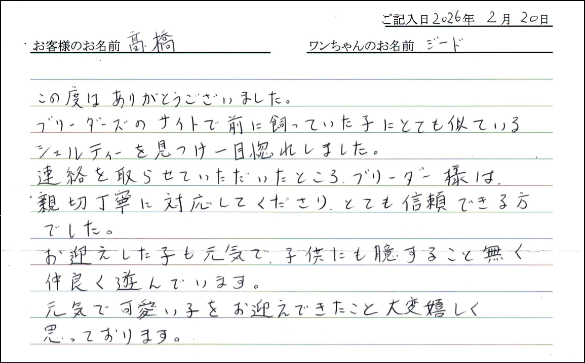 ご記入日2026年 2月 20日
お客様のお名前 髙橋 ワンちゃんのお名前 ジード
この度は ありがとうございました。
ブリーダーズのサイトで前に飼っていた子にとても似ている
シェルティーを見つけ一目惚れしました。
連絡を取らせていただいたところ、ブリーダー様は、
親切丁寧に対応してくださり、とても信頼できる方
でした。
お迎えした子も元気で、子供にも臆すること無く
仲良く遊んでいます。
元気で可愛い子をお迎えできたこと大変嬉しく
思っております。